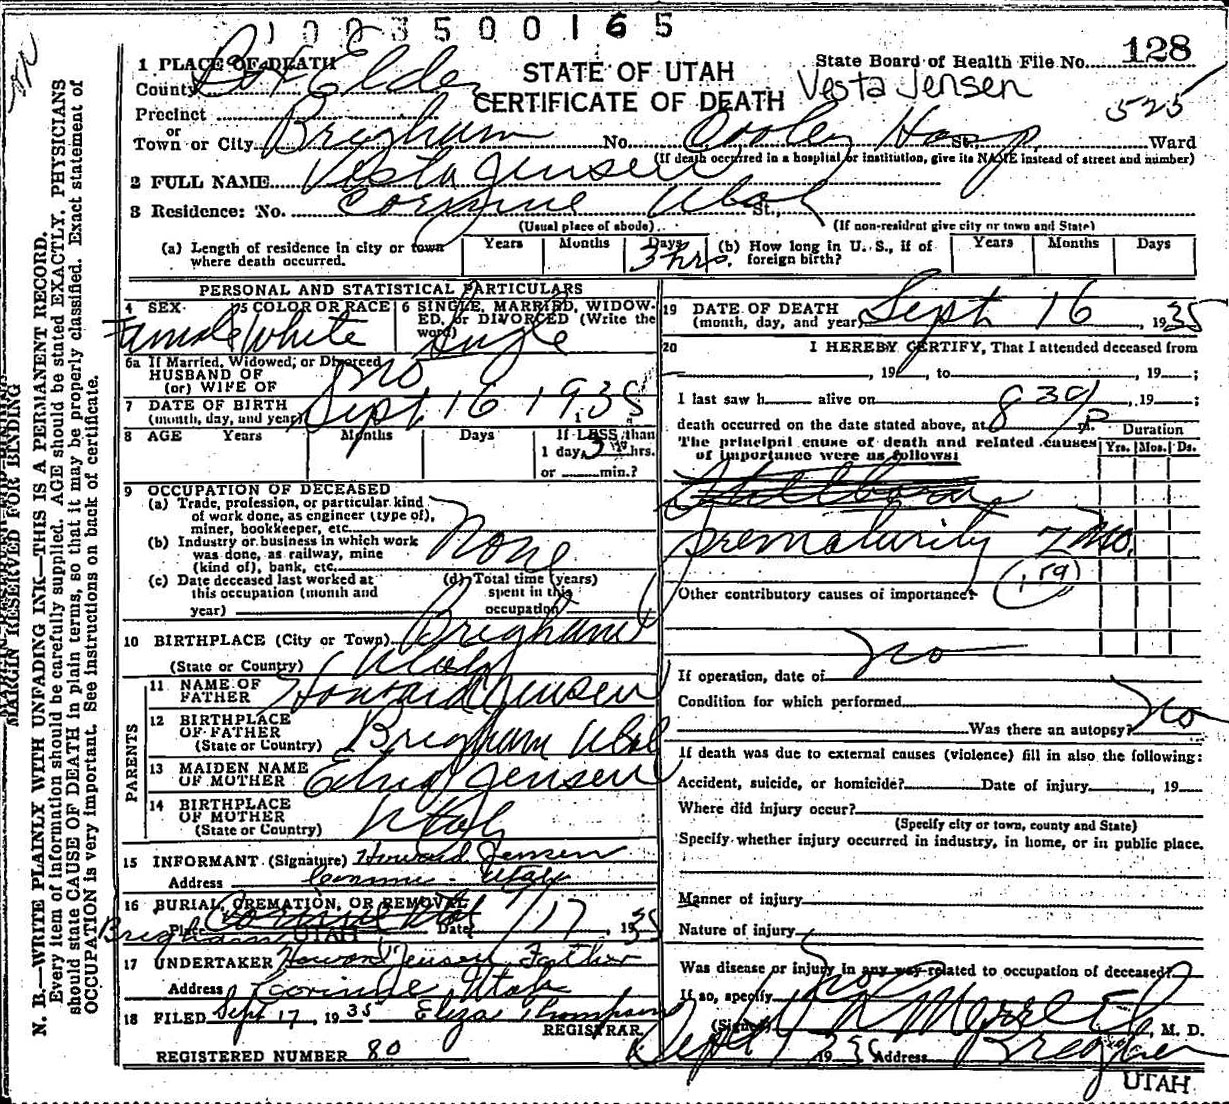 1003500165
1 PLACE OF DEATH
County Box Elder
STATE OF UTAH
CERTIFICATE OF DEATH
State Board of Health File No. 128
Vesta Jensen
525
Precinct
or
Town or City Brigham No. Cooley Hosp. St. Ward
(If death occurred in a hospital or institution, give its NAME instead of street and number)
2 FULL NAME Vesta Jensen
3 Residence: No. Corinne Utah St.,
(Usual place of abode) (If non-resident give city or town and State)
(a) Length of residence in city or town where death occurred. Years Months Days 3 hrs. (b) How long in U. S., if of foreign birth? Years Months Days
PERSONAL AND STATISTICAL PARTICULARS
4 SEX Female 5 COLOR OR RACE White 6 SINGLE, MARRIED, WIDOWED, or DIVORCED (Write the word) Single
6a If Married, Widowed, or Divorced
HUSBAND OF
(or) WIFE OF no
7 DATE OF BIRTH
(month, day, and year) Sept 16 1935
8 AGE Years Months Days If LESS than
1 day, 3 hrs.
or min.?
9 OCCUPATION OF DECEASED
(a) Trade, profession, or particular kind
of work done, as engineer (type of),
miner, bookkeeper, etc. None
(b) Industry or business in which work
was done, as railway, mine
(kind of), bank, etc.
(c) Date deceased last worked at
this occupation (month and
year)
(d) Total time (years)
spent in this
occupation
10 BIRTHPLACE (City or Town) Brigham
(State or Country) Utah
PARENTS
11 NAME OF
FATHER Howard Jensen
12 BIRTHPLACE
OF FATHER
(State or Country) Brigham Utah
13 MAIDEN NAME
OF MOTHER Jensen
14 BIRTHPLACE
OF MOTHER
(State or Country) Utah
15 INFORMANT (Signature) Howard Jensen
Address Corinne - Utah
16 BURIAL, CREMATION, OR REMOVAL
Place Corinne Utah Date 17, 1935
Brigham UTAH
17 UNDERTAKER Howard Jensen Father
Address Corinne Utah
18 FILED Sept 17, 1935 Eliza Thompson
REGISTRAR
REGISTERED NUMBER 80
19 DATE OF DEATH
(month, day, and year) Sept 16, 1935
20 I HEREBY CERTIFY, That I attended deceased from
, 19 , to , 19 ;
I last saw h alive on , 19 ;
death occurred on the date stated above, at 8 39 P m. Duration
The principal cause of death and related causes
of importance were as follows: Yrs. Mos. Ds.
Stillborn
prematurity 7 mo.
159
Other contributory causes of importance:
If operation, date of no
Condition for which performed
Was there an autopsy? No
If death was due to external causes (violence) fill in also the following:
Accident, suicide, or homicide? Date of injury , 19
Where did injury occur?
(Specify city or town, county and State)
Specify whether injury occurred in industry, in home, or in public place.
Manner of injury
Nature of injury
Was disease or injury in any way related to occupation of deceased? no
If so, specify
(Signed) Merrell, M. D.
Sept 1935 Address Brigham
UTAH
MARGIN RESERVED FOR BINDING
N. B.—WRITE PLAINLY WITH UNFADING INK—THIS IS A PERMANENT RECORD.
Every item of information should be carefully supplied. AGE should be stated EXACTLY. PHYSICIANS
should state CAUSE OF DEATH in plain terms, so that it may be properly classified. Exact statement of
OCCUPATION is very important. See instructions on back of certificate.